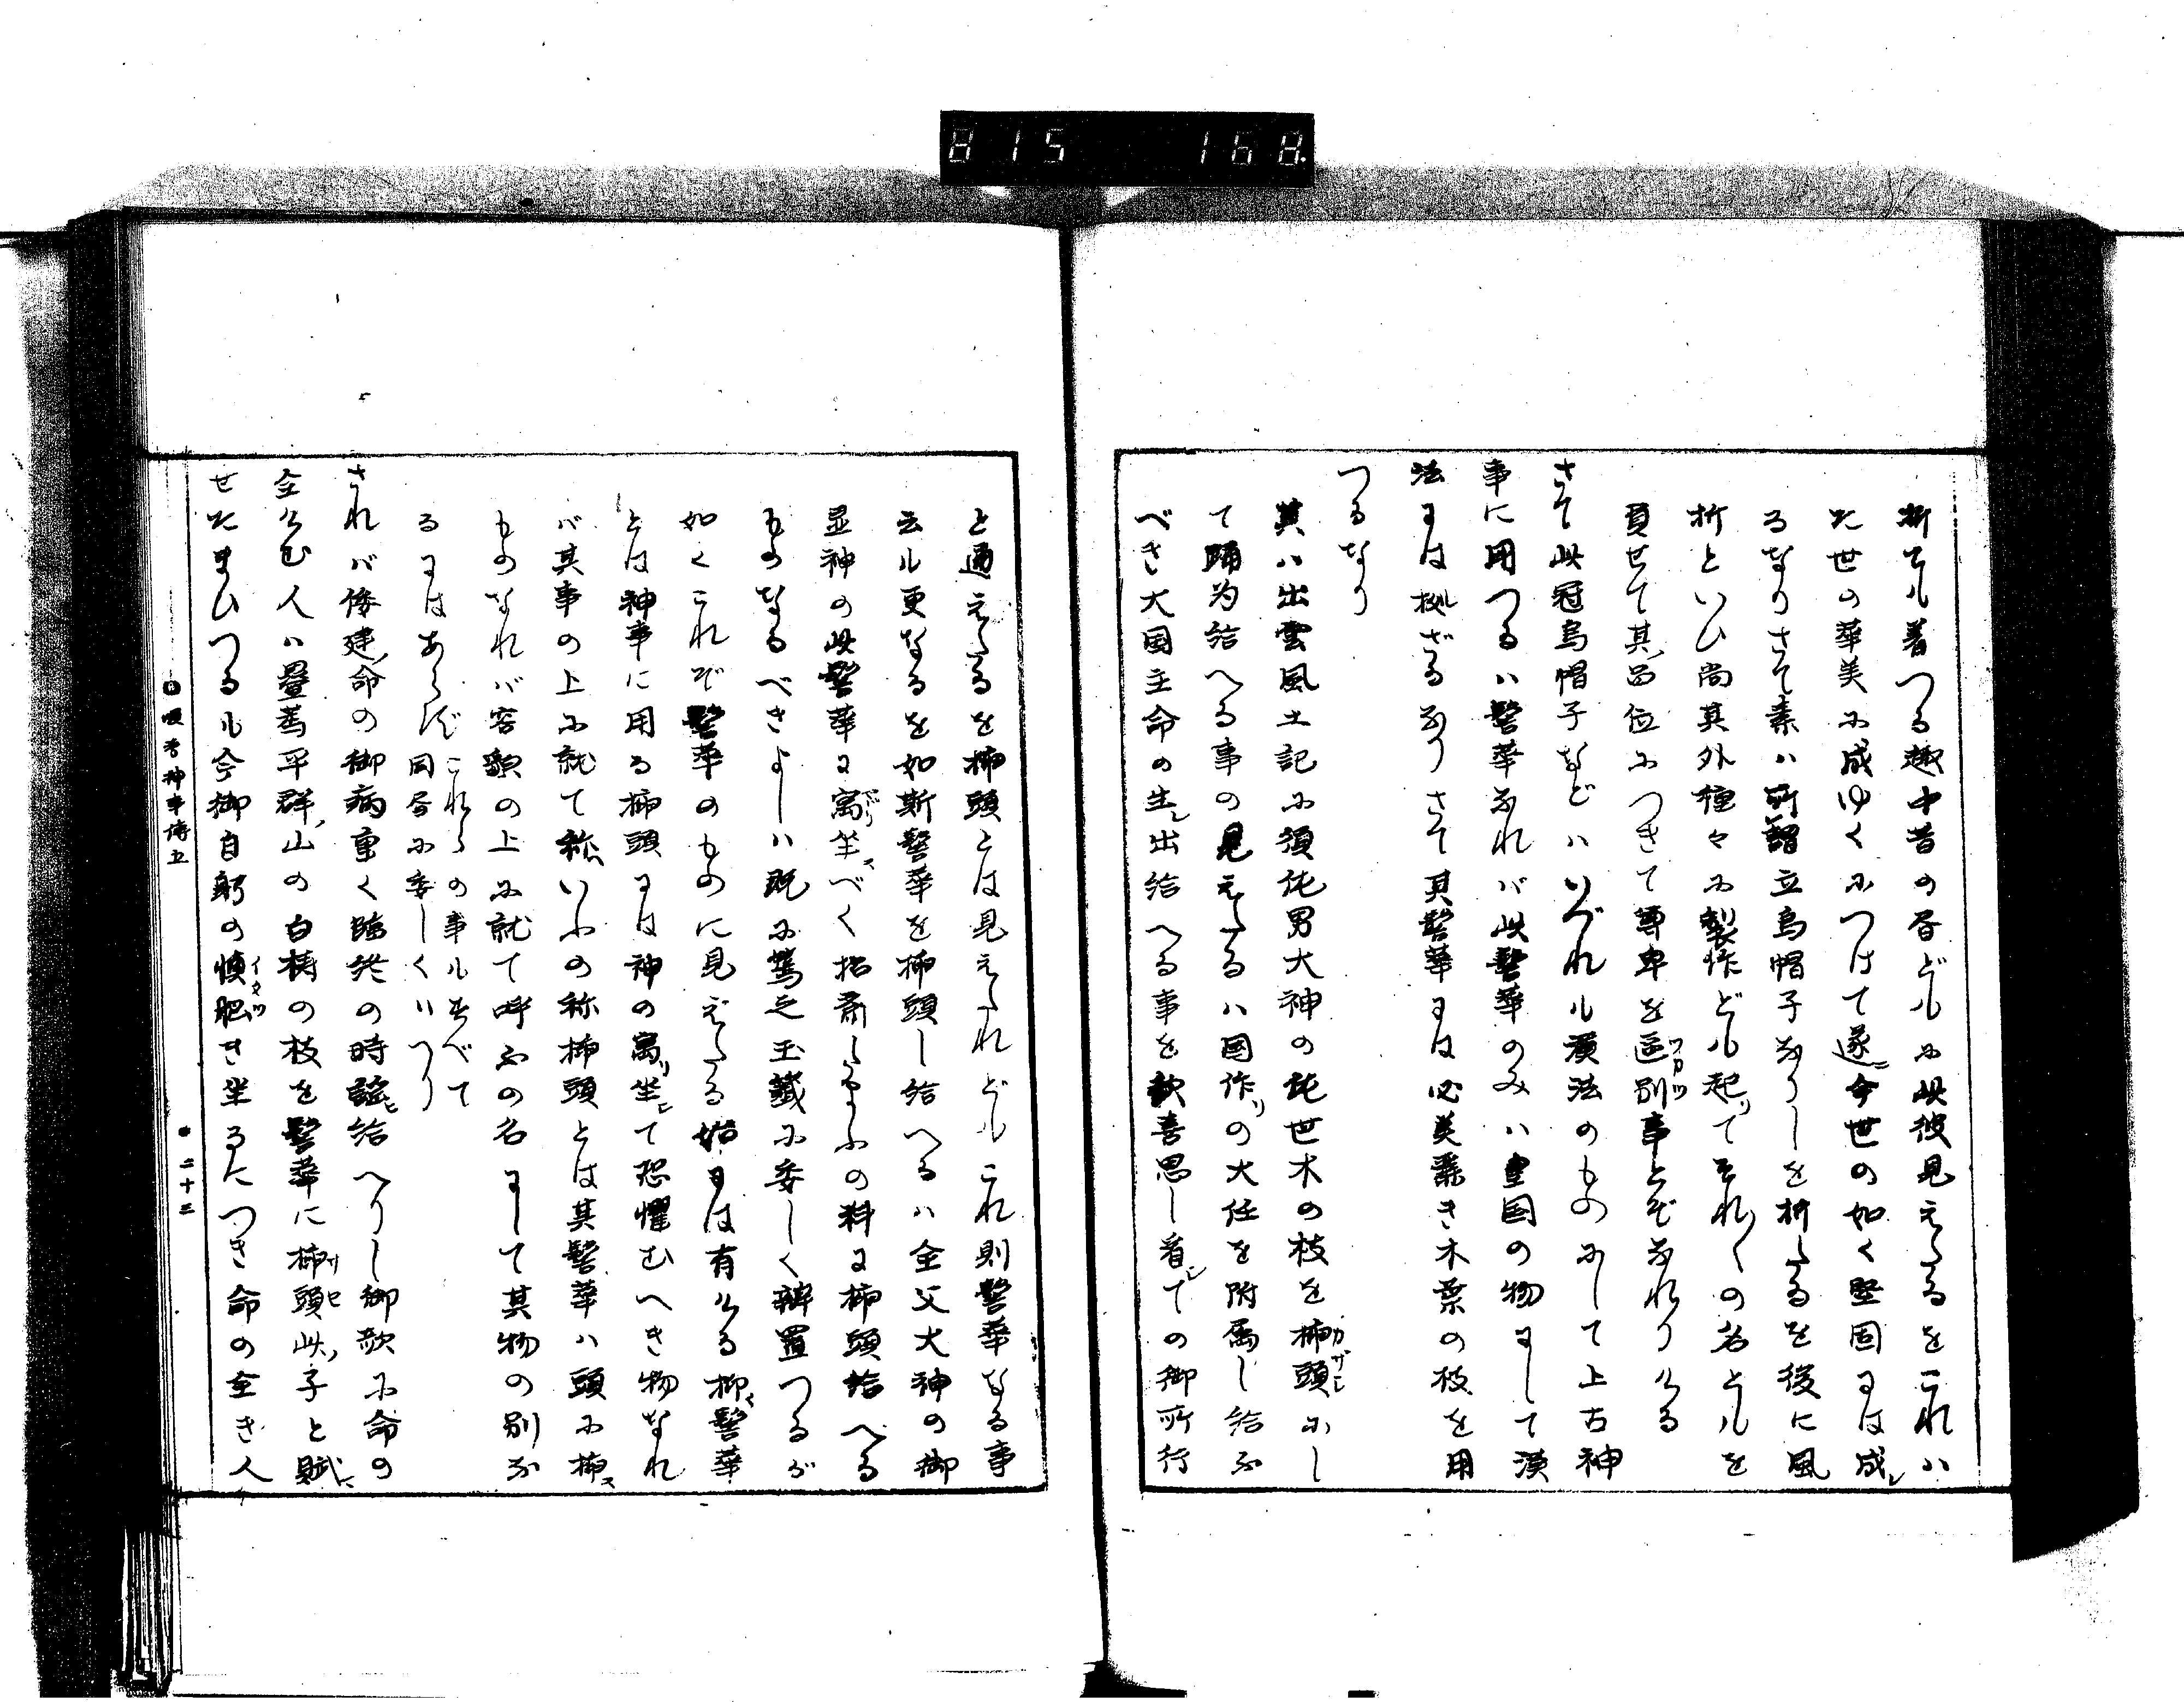 815 168
折ても著つる趣中昔の冊ども尓此彼見えたるをこれハ
た世の華美尓成ゆく尓つけて遂ニ今世の如く堅固には成レ
るなりさて素ハ所謂立烏帽子なりしを折たるを後に風
折といひ尚其外種々尓製作ども起リてそれ〳〵の名ともを
負せて其ノ品位尓つきて尊卑を区別ワカツ事とぞなれりける
さて此冠烏帽子などハいづれも漢法のもの尓して上古神
事に用つるハ髻華なれバ此髻華のみハ皇国の物にして漢
法には拠ルざるなりさて其髻華には必美麗き木葉の枝を用
つるなり
其ハ出雲風土記尓須佐男大神の佐世木の枝を挿頭カザシ尓し
て踊為給へる事の見えたるハ国作リの大任を附属し給ふ
べき大国主命の生レ出給へる事を歓喜思し看シての御所行
と通えたるを挿頭とは見えたれどもこれ則髻華なる事
云も更なるを如斯髻華を挿頭し給へるハ全父大神の御
霊神の此髻華に寓ヨリ坐スべく招斎したまふの料に挿頭給へる
ものなるべきよしハ既尓篶之玉籤尓委しく辨置つるが
如くこれぞ髻華のものに見えたる始には有ける挿ス髻華
とは神事に用る挿頭には神の寓リ坐シて恐懼むへき物なれ
バ其事の上尓就て称いふの称挿頭とは其髻華ハ頭尓挿ス
ものなれバ容貌の上尓就て呼ふの名にして其物の別な
るにはあらず これらの事もすべて
同冊尓委しくいへり
されバ倭建ノ命の御病重く臨終の時謡ヒ給へりし御歌尓命の
全けむ人ハ畳薦平群ノ山の白檮の枝を髻華に挿頭サセ此ノ子と賦ニ
せたまひつるも今御自躬の慎イタツ肥き坐るにつき命の全き人
神事傳五
二十三